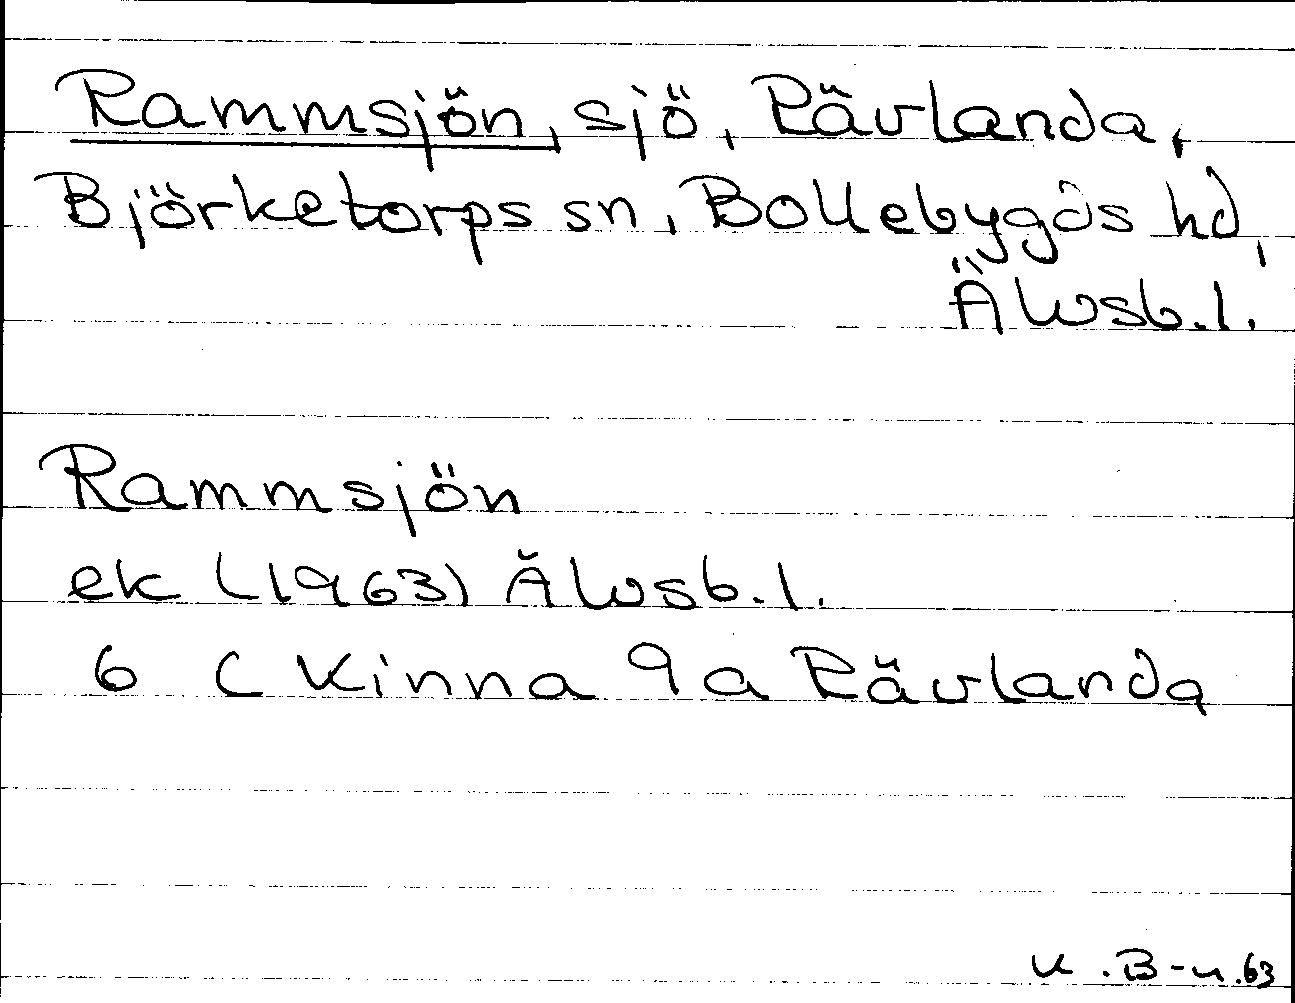 Rammsjön, sjö, Rävlanda,
Björketorps sn, Bollebygds hd,
Älvsb.l.
Rammsjön
ek (1963) Älvsb.l.
6 C Kinna 9a Rävlanda
K.B-n.63